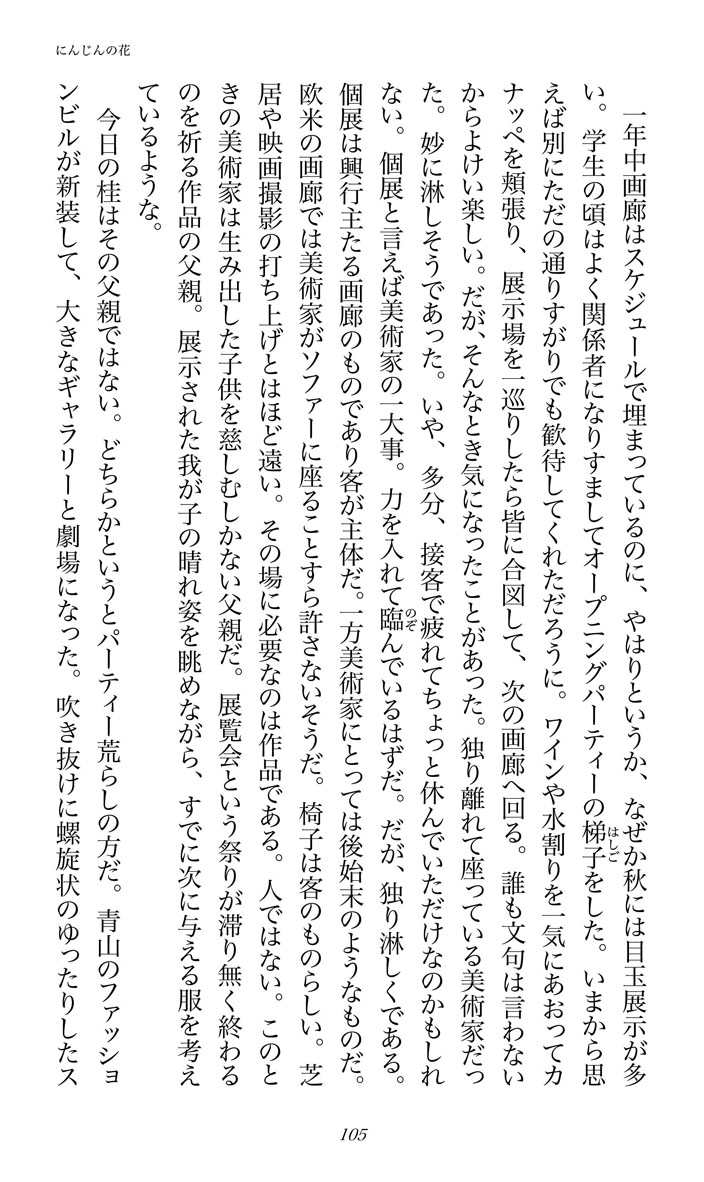 にんじんの花
　一年中画廊はスケジュールで埋まっているのに、やはりというか、なぜか秋には目玉展示が多
い。学生の頃はよく関係者になりすましてオープニングパーティーの梯子をした。いまから思
えば別にただの通りすがりでも歓待してくれただろうに。ワインや水割りを一気にあおってカ
ナッペを頬張り、展示場を一巡りしたら皆に合図して、次の画廊へ回る。誰も文句は言わない
からよけい楽しい。だが、そんなとき気になったことがあった。独り離れて座っている美術家だっ
た。妙に淋しそうであった。いや、多分、接客で疲れてちょっと休んでいただけなのかもしれ
ない。個展と言えば美術家の一大事。力を入れて臨んでいるはずだ。だが、独り淋しくである。
個展は興行主たる画廊のものであり客が主体だ。一方美術家にとっては後始末のようなものだ。
欧米の画廊では美術家がソファーに座ることすら許さないそうだ。椅子は客のものらしい。芝
居や映画撮影の打ち上げとはほど遠い。その場に必要なのは作品である。人ではない。このと
きの美術家は生み出した子供を慈しむしかない父親だ。展覧会という祭りが滞り無く終わる
のを祈る作品の父親。展示された我が子の晴れ姿を眺めながら、すでに次に与える服を考え
ているような。
　今日の桂はその父親ではない。どちらかというとパーティー荒らしの方だ。青山のファッショ
ンビルが新装して、大きなギャラリーと劇場になった。吹き抜けに螺旋状のゆったりしたス
のぞ
はしご
105